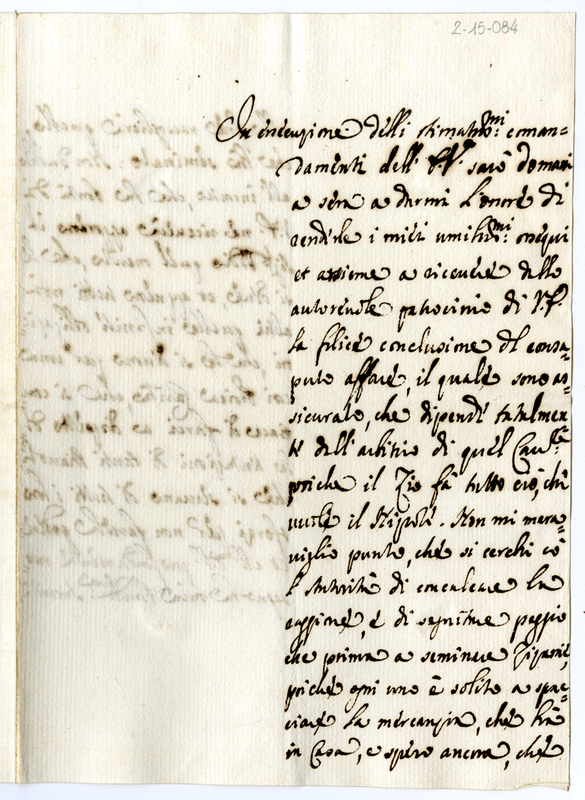 2-15-084
In esecuzione delli stimatis.mi coman=
damenti dell' V.S. sarò domani
a sera a darmi l'onore di
renderle i miei umilis.mi: ossequi
et assieme a ricevere dallo
autorevole patrocinio di V.S.
la felice conclusione del consa=
puto affare, il quale sono as=
sicurato, che dipende totalmen
te dall' arbitrio di quel Cau.re
poiche il Zio fà tutto ciò, che
vuole il Nipote. Non mi mera=
viglio punto, che si cerchi cõ
l'Autorità di conculcare la
raggione, e di seguitare peggio
che prima a seminare Zizanie,
poiche ogni uno è solito a spac=
ciare la mercanzia, che hà
in Casa, e spero ancora, che